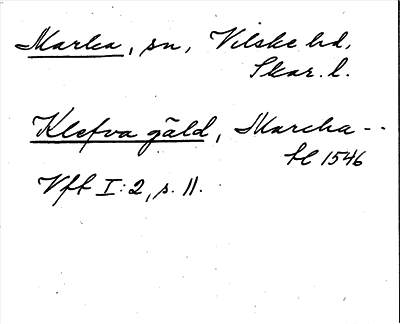 Marka, sn, Vilske hd,
Skar. l.
Klefva gäld, Marcha --
hl 1546
Vft I:2, s. 11.